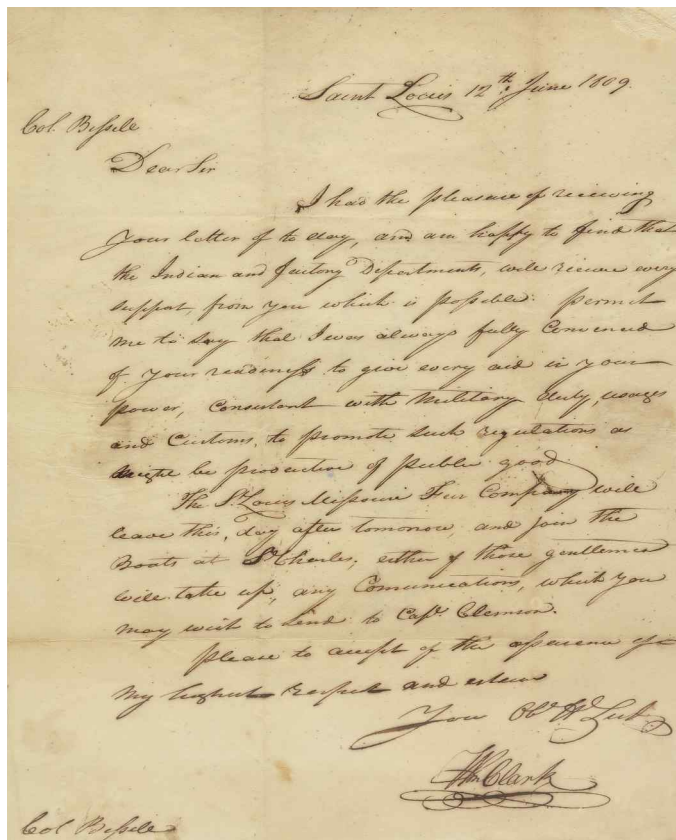 Saint Louis 12th June 1809.
Col. Bissele
Dear Sir
I had the pleasure of receiving
your letter of to day, and am happy to find that
the Indian and factory Departments, will receive every
support from you which is possible. permit
me to say that I was always fully Convenced
of your readiness to give every aid in your
power, Consistant with Military duty, usages
and Customs, to promote such regulations as
might be productive of public good.
The St. Louis Missouri Fur Company will
leave this, day after tomorrow, and join the
Boats at St. Charles, either of those gentlemen
will take up, any Comunications, which you
may wish to Send to Capt. Clemson.
please to accept of the assurance of
my highest respect and esteem
Your Obt. Hl. Sert.
Wm Clark
Col Bissele